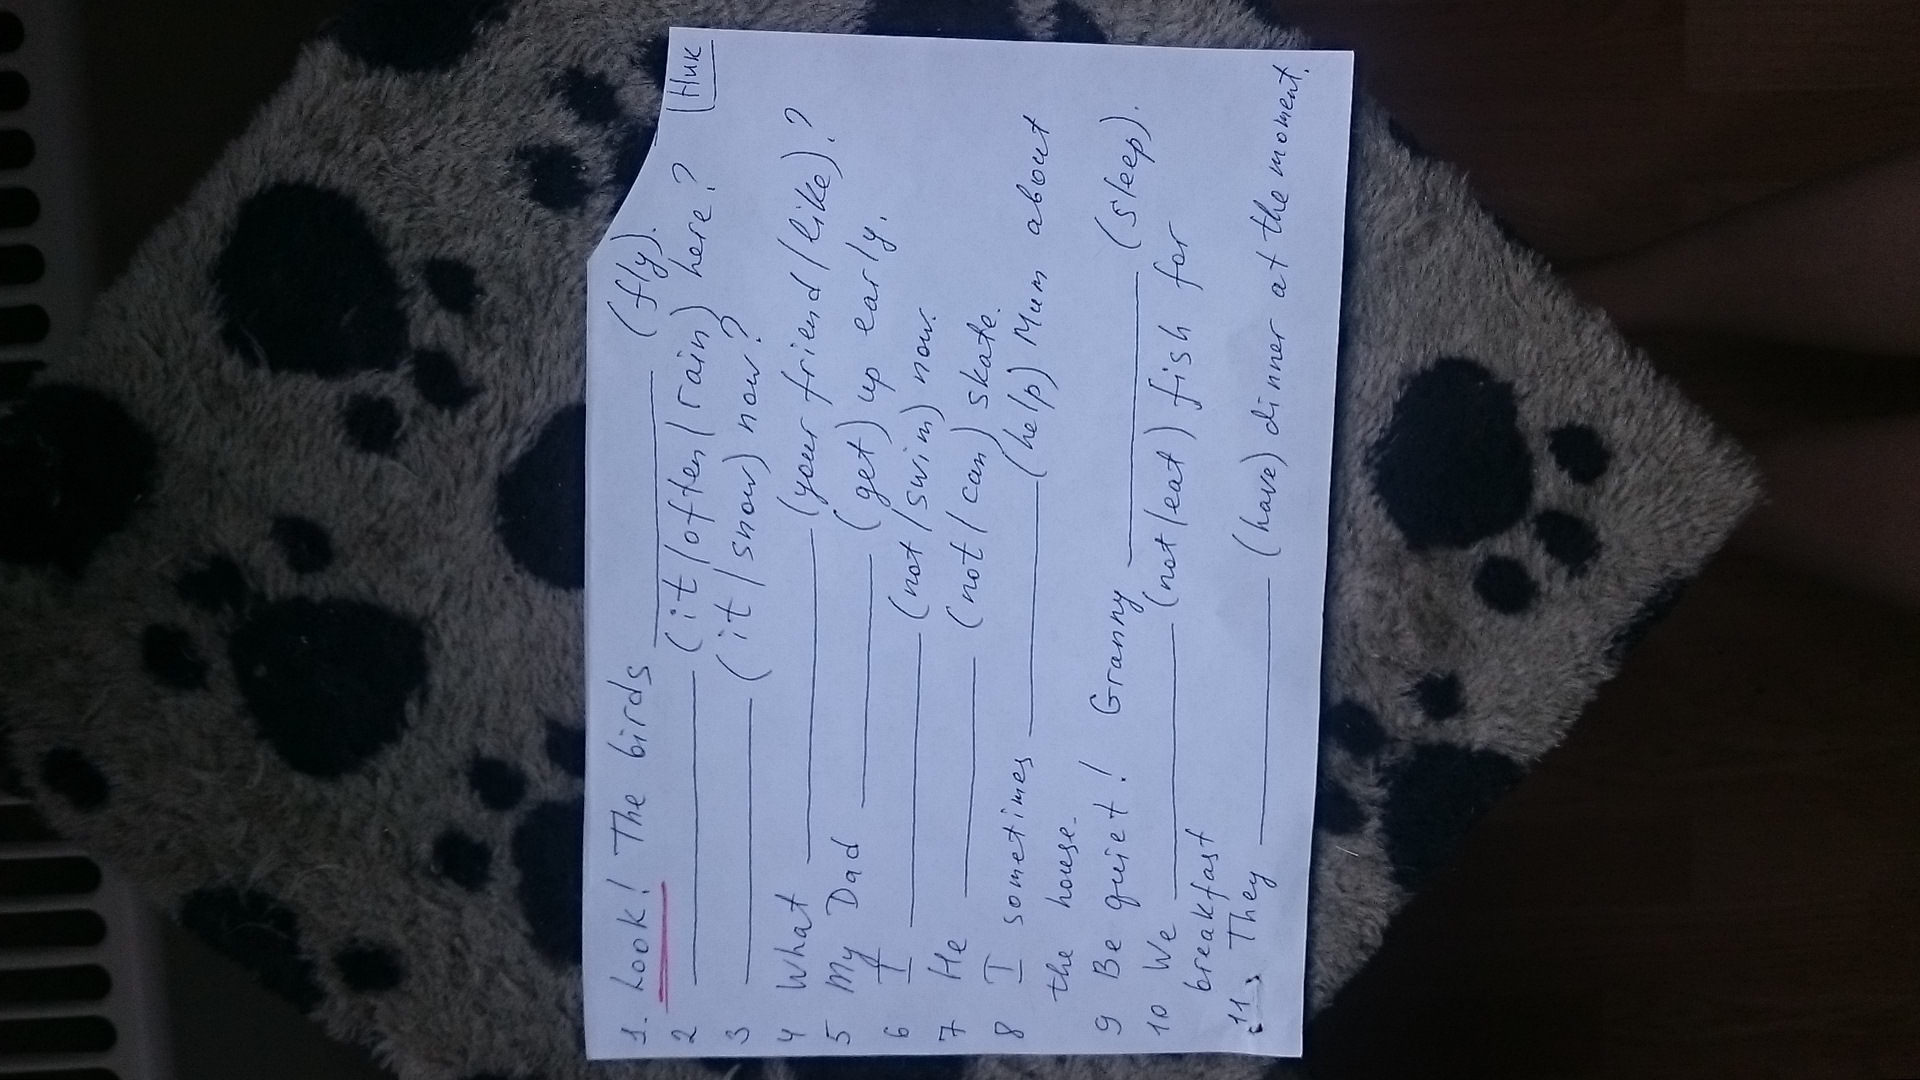 Ник
1. Look! The birds ______ (fly).
2 ______ (it/often/rain) here?
3 ______ (it/snow) now?
4 What ______ (your friend/like)?
5 My Dad ______ (get) up early.
6 I ______ (not/swim) now.
7 He ______ (not/can) skate.
8 I sometimes ______ (help) Mum about
the house.
9 Be quiet! Granny ______ (sleep).
10 We ______ (not/eat) fish for
breakfast
11 They ______ (have) dinner at the moment.